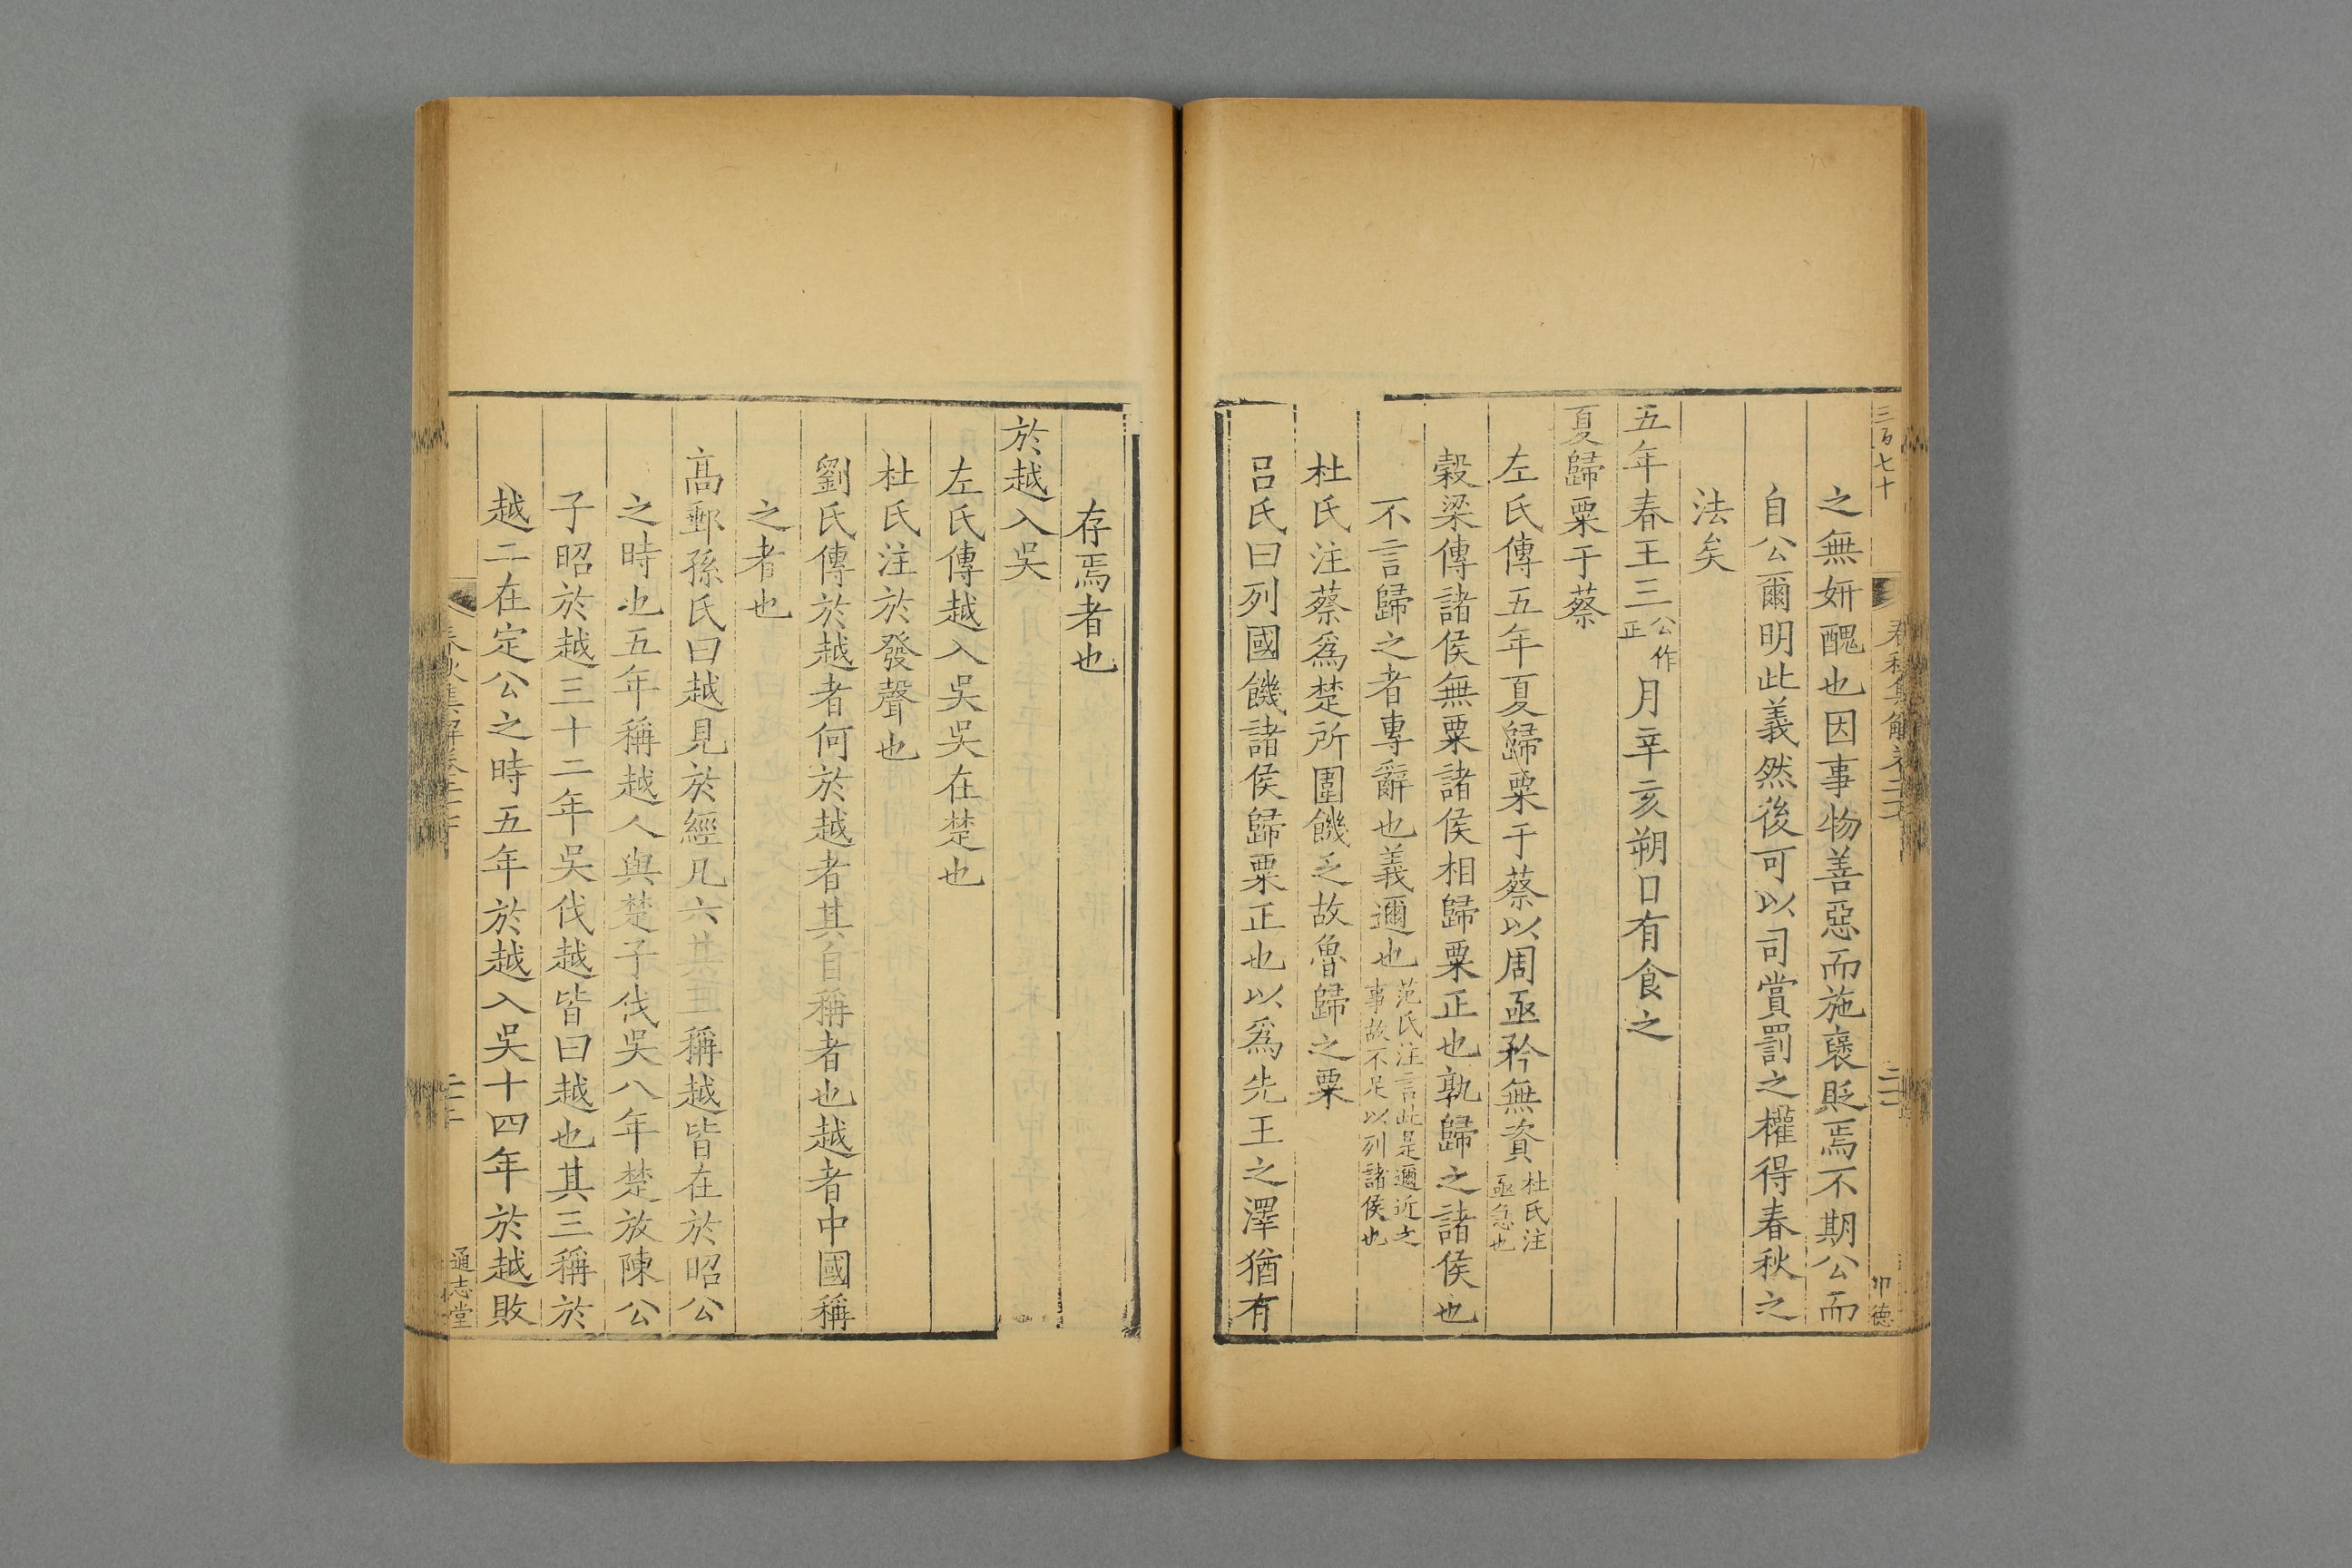 三百七十
之無妍醜也因事物善惡而施褒貶焉不期公而
自公爾明此義然後可以司賞罰之權得春秋之
法矣
五年春王三公作正月辛亥朔日有食之
夏歸粟于蔡
左氏傳五年夏歸粟于蔡以周亟矜無資杜氏注亟急也
穀梁傳諸侯無粟諸侯相歸粟正也孰歸之諸侯也
不言歸之者專辭也義邇也范氏注言此是邇近之事故不足以列諸侯也
杜氏注蔡爲楚所圍饑乏故魯歸之粟
呂氏曰列國饑諸侯歸粟正也以爲先王之澤猶有
存焉者也
於越入吳
左氏傳越入吳吳在楚也
杜氏注於發聲也
劉氏傳於越者何於越者其自稱者也越者中國稱
之者也
高郵孫氏曰越見於經凡六其稱越皆在於昭公
之時也五年稱越人與楚子伐吳八年楚放陳公
子昭於越三十二年吳伐越皆曰越也其三稱於
越二在定公之時五年於越入吳十四年於越敗
春秋集解卷二十
通志堂